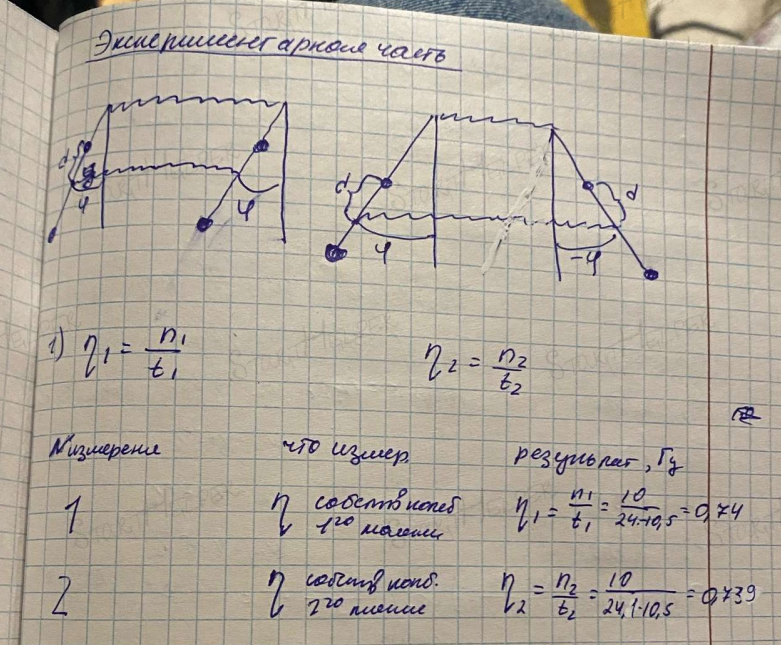 Экспериментарная часть
d
φ
φ
d
φ
d
-φ
1) η₁ = n₁/t₁
η₂ = n₂/t₂
№измерения что измер. результат, Гц
1 η собств колеб 1го маятни η₁ = n₁/t₁ = 10/24-10,5 = 0,74
2 η собств колб. 2го η₂ = n₂/t₂ = 10/24,1-10,5 = 0,739